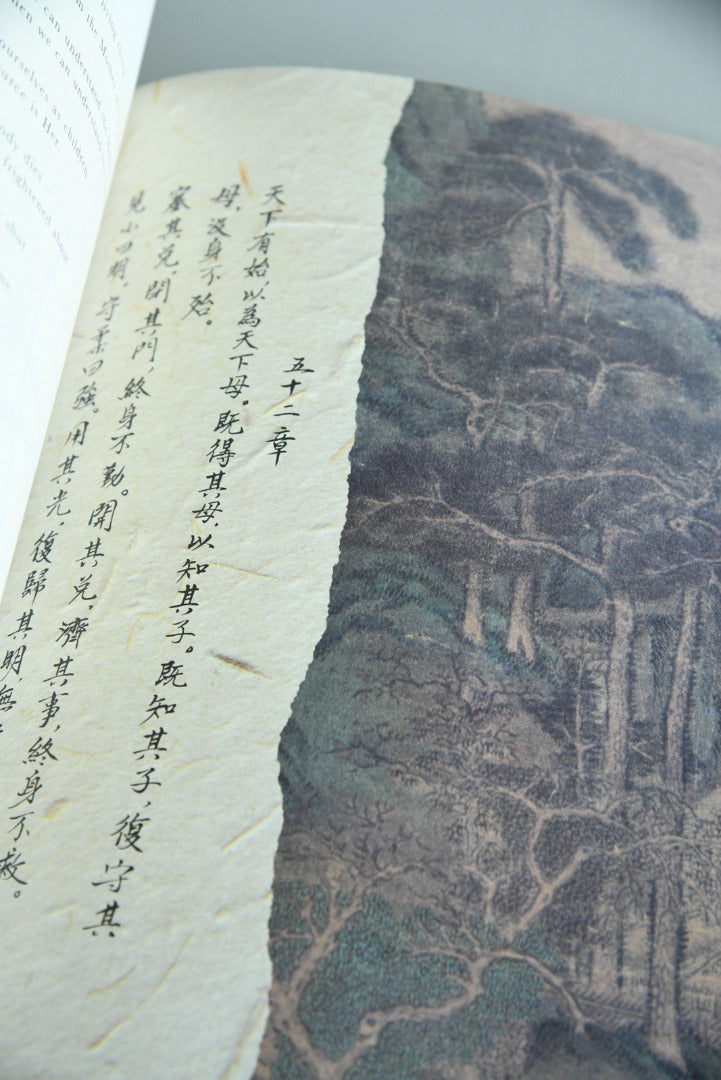 can understand
when we can understand
ourselves as children
urce is Her.
ody dies -
frightened shape
shut
五十二章
天下有始以為天下母。既得其母，以知其子。既知其子，復守其
母，沒身不殆。
塞其兌，閉其門，終身不勤。開其兌，濟其事，終身不救。
見小曰明，守柔曰強。用其光，復歸其明無